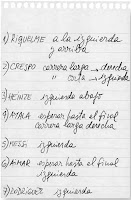 1) RIQUELME a la izquierda
y arriba
2) CRESPO carrera larga → derecha
" corta → izquierda
3) HEINZE izquierda abajo
4) AYALA esperar hasta el final
carrera larga derecha
5) MESSI izquierda
6) AIMAR esperar hasta el final
izquierda
7) RODRIGUEZ izquierda